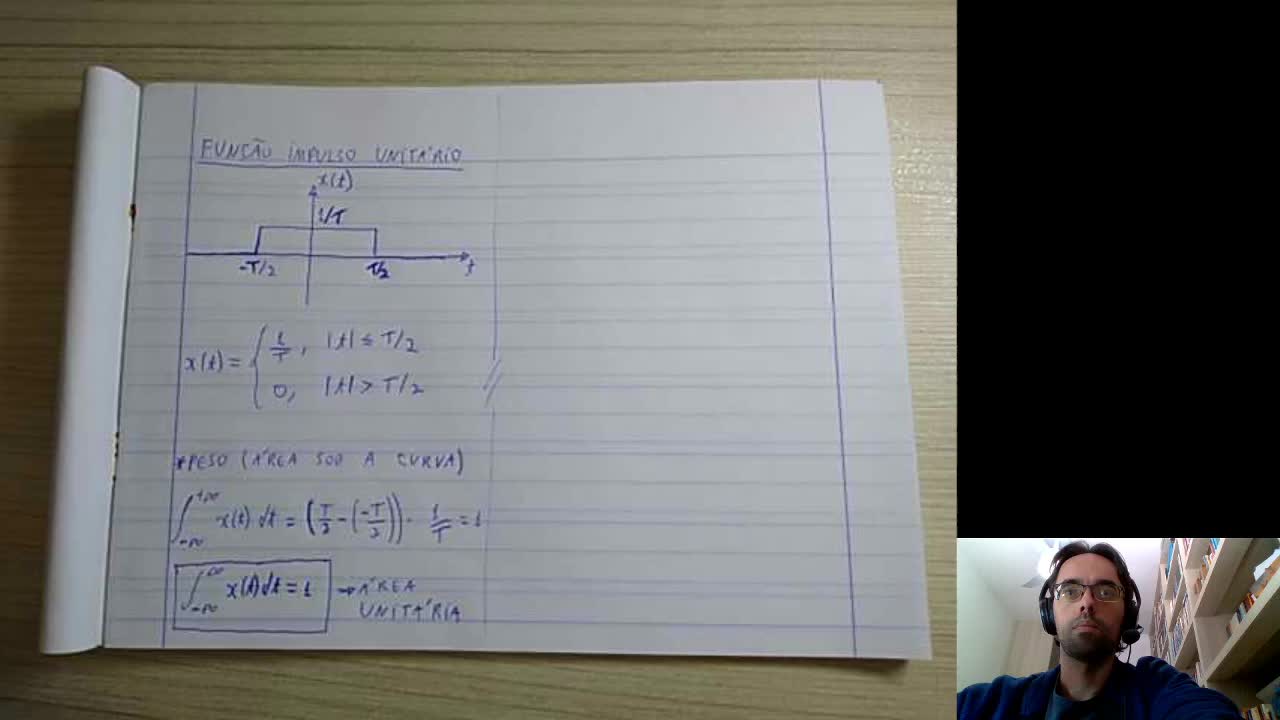 FUNÇÃO IMPULSO UNITÁRIO
x(t)
1/T
-T/2 T/2 t
x(t) = { 1/T, |t| ≤ T/2
0, |t| > T/2
*PESO (ÁREA SOB A CURVA)
∫_{-∞}^{+∞} x(t) dt = (T/2 - (-T/2)) · 1/T = 1
∫_{-∞}^{∞} x(t) dt = 1 → ÁREA
UNITÁRIA